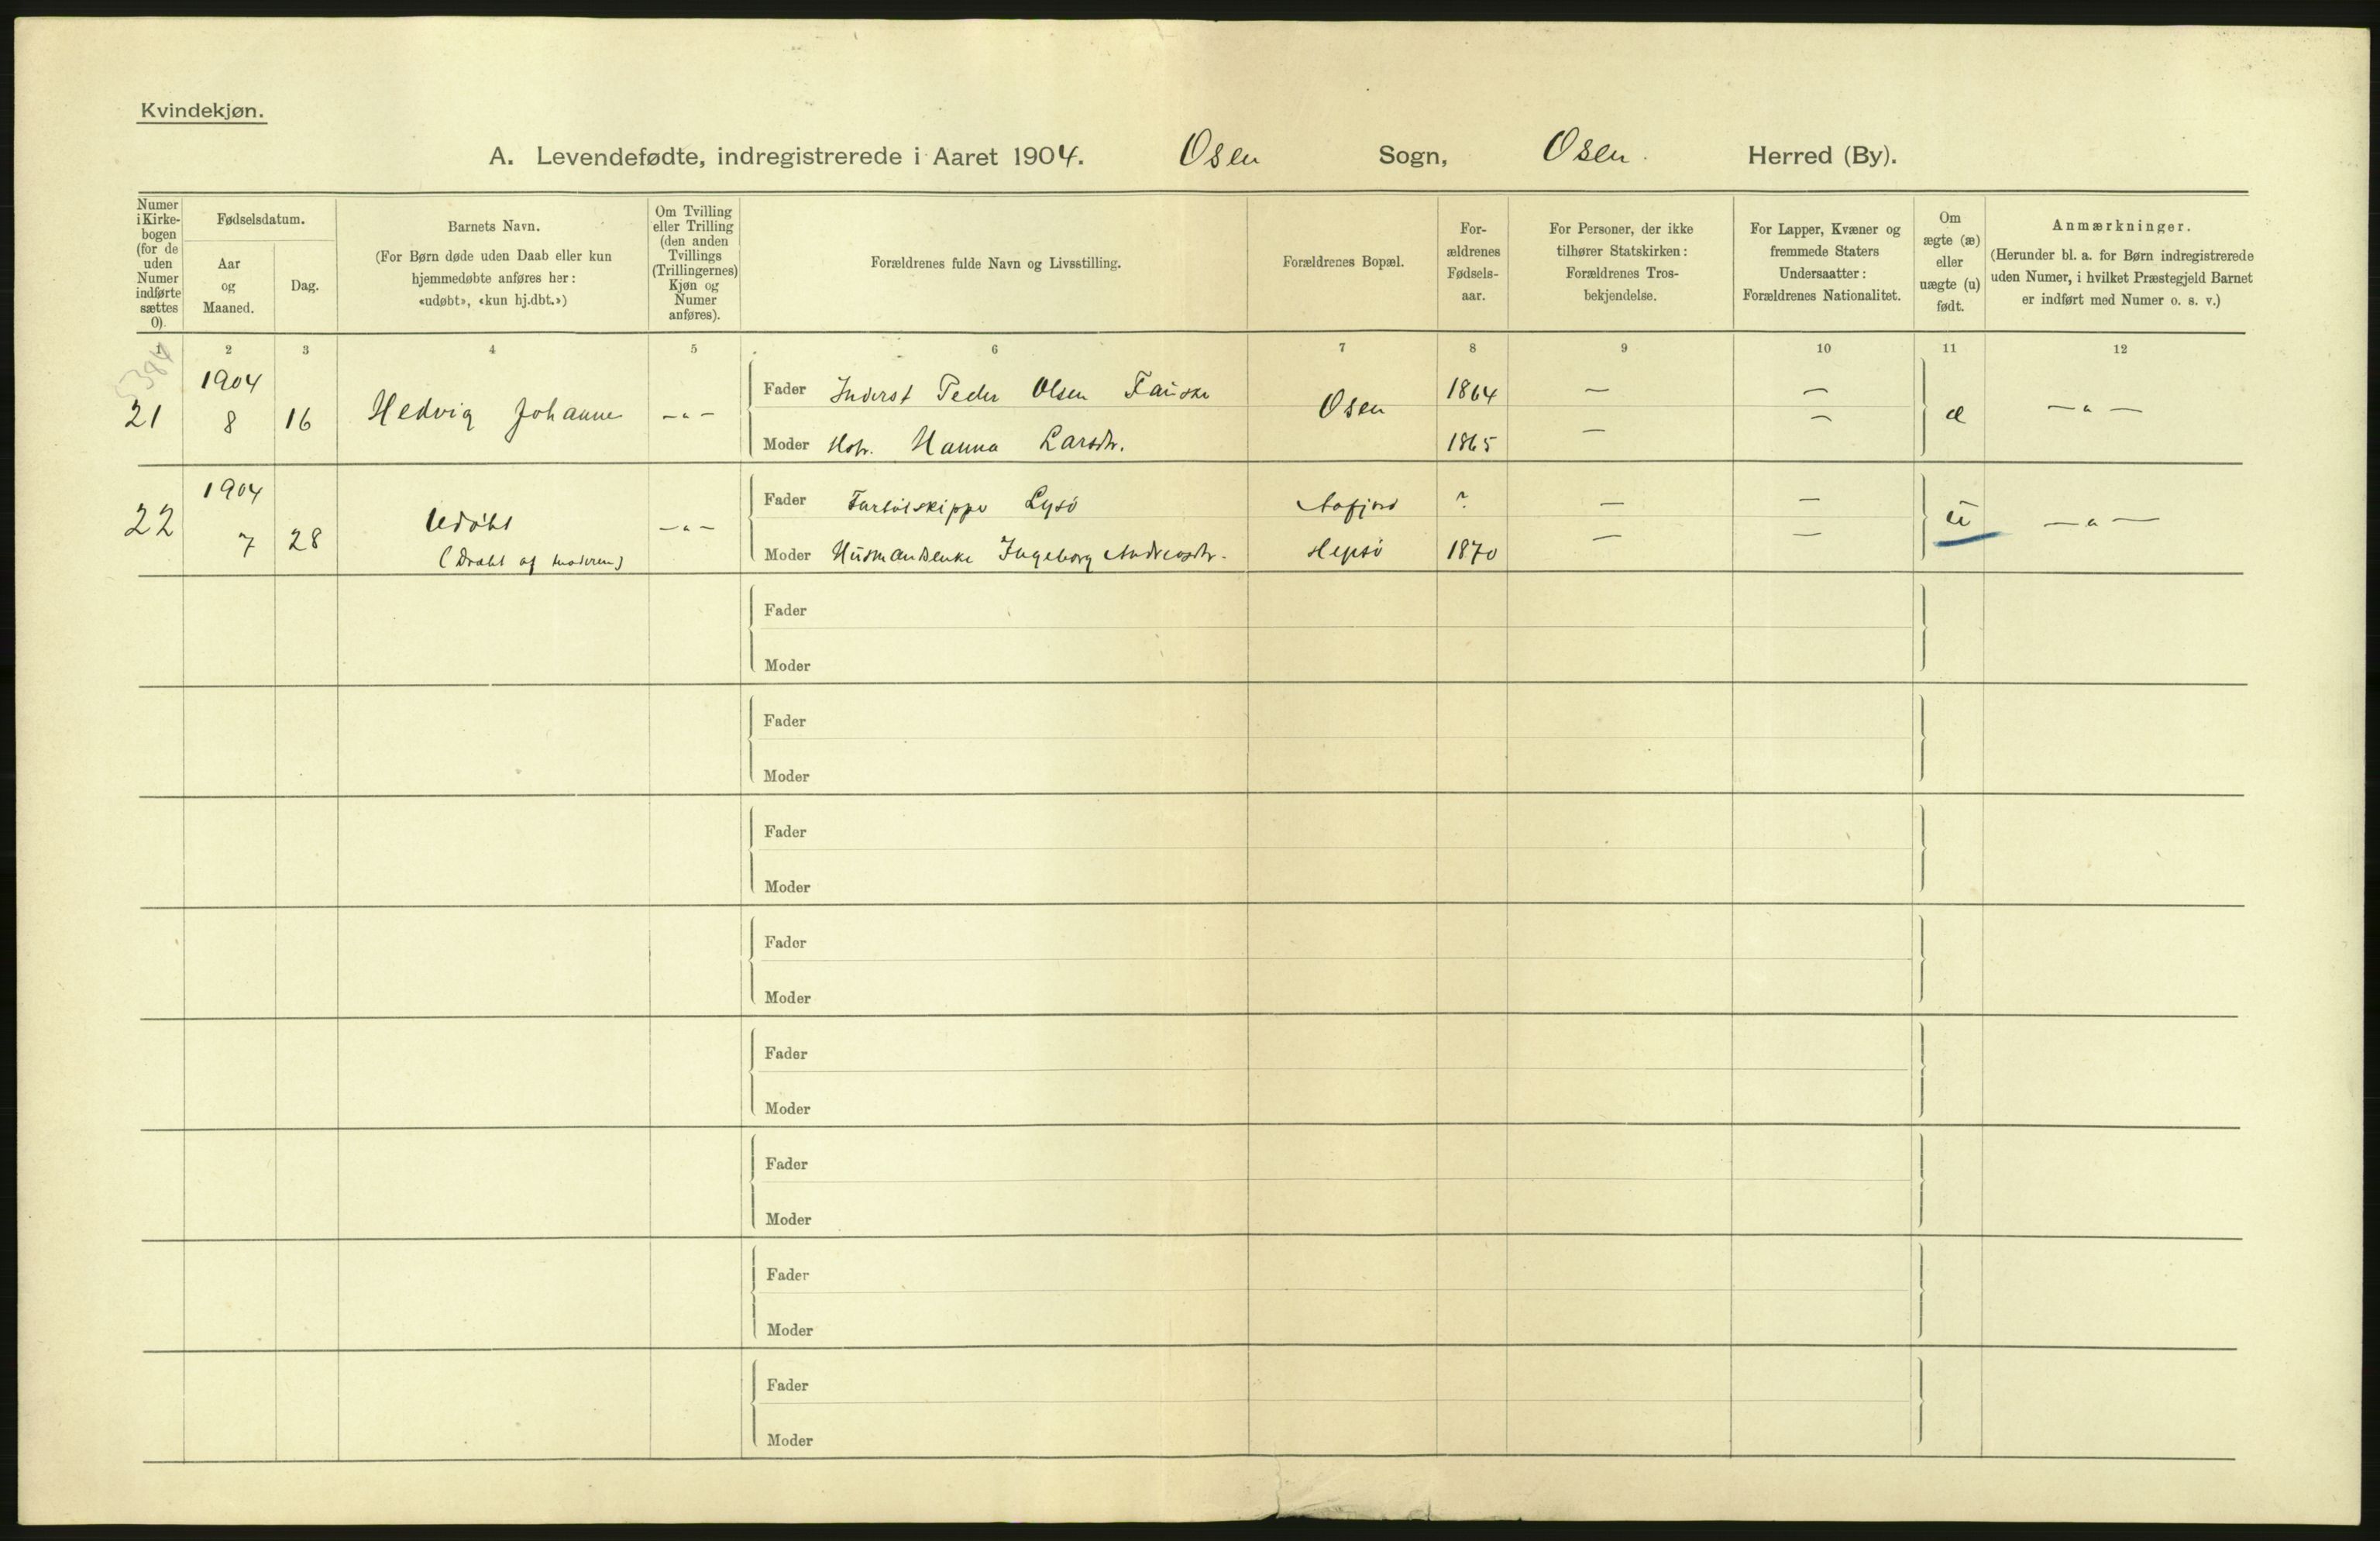 Kvindekjøn.
A. Levendefødte, indregistrerede i Aaret 1904. Osen Sogn, Osen. Herred (By).
Numer i Kirke-bogen (for de uden Numer indførte sættes 0).
Fødselsdatum.
Aar og Maaned.
Dag.
Barnets Navn.
(For Børn døde uden Daab eller kun
hjemmedøbte anføres her:
«udøbt», «kun hj.dbt.»)
Om Tvilling
eller Trilling
(den anden
Tvillings
(Trillingernes)
Kjøn og
Numer
anføres).
Forældrenes fulde Navn og Livsstilling.
Forældrenes Bopæl.
For-
ældrenes
Fødsels-
aar.
For Personer, der ikke
tilhører Statskirken:
Forældrenes Tros-
bekjendelse.
For Lapper, Kvæner og
fremmede Staters
Undersaatter:
Forældrenes Nationalitet.
Om
ægte (æ)
eller
uægte (u)
født.
Anmærkninger.
(Herunder bl. a. for Børn indregistrerede
uden Numer, i hvilket Præstegjeld Barnet
er indført med Numer o. s. v.)
1 2 3 4 5 6 7 8 9 10 11 12
1904
21 8 16 Hedvig Johanne — " —
Fader Inderst Peder Olsen Fauske Osen 1864 — — æ — " —
Moder Hstr. Hanna Larsdtr. 1865 — —
1904
22 7 28 Udøbt — " —
(Dræbt af moderen)
Fader Lysö Aafjord ? — — u — " —
Moder Husmandsenke Ingeborg Andreasdtr. Hepsö 1870 — —
Fader
Moder
Fader
Moder
Fader
Moder
Fader
Moder
Fader
Moder
Fader
Moder
Fader
Moder
Fader
Moder